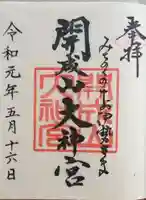 奉拝
みちのくのお伊勢さま
開成山大神宮
令和元年五月十六日